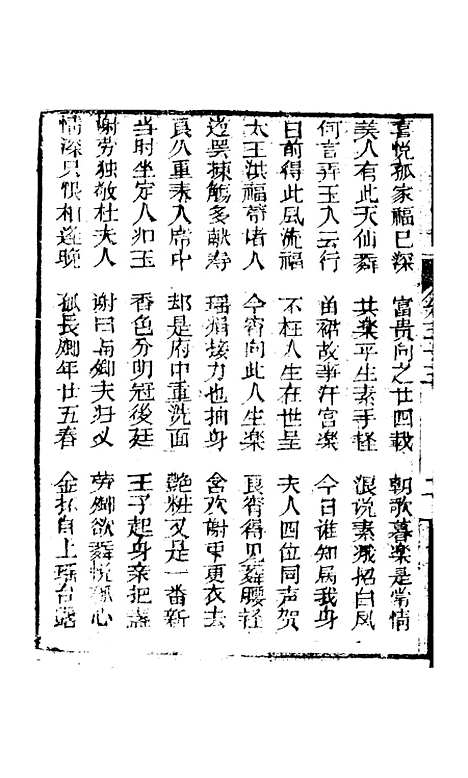 喜悦孤家福已深 富贵向之廿四载 朝歌暮楽是常情
美人有此天仙舞 共楽平生素手轻 浪说素娥招白凤
何言弄玉入云行 故事在宫楽 今日谁知属我身
目前得此風流福 不枉人生在世呈 夫人四位同声贺
太王洪福寄诸人 今宵向此人生楽 良宵得见舞腰轻
边罢觥觞多献寿 瑶接力也抽身 含欢谢更衣去
良久重来入席中 却是府中重洗面 艳粧又是一番新
当时坐定人如玉 香色分明冠後廷 王子起身亲把盏
谢劳独敬杜夫人 谢曰与卿夫归义 劳卿欲舞悦心
情深只恨相逢晚 孤长卿年廿五春 金杯自上瑶台露